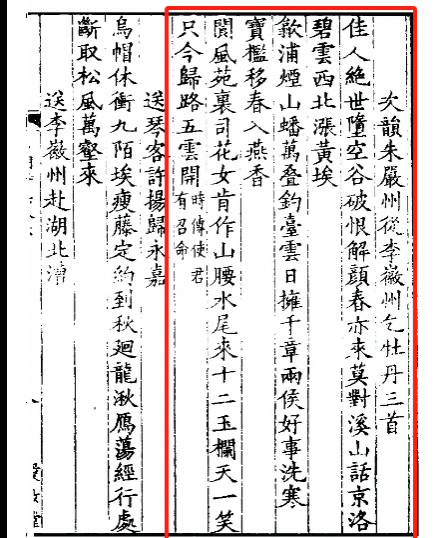 次韻朱嚴州從李徽州乞牡丹三首
佳人絕世墮空谷破恨解顏春亦來莫對溪山話京洛
碧雲西北漲黃埃
歙浦煙山蟠萬疊釣臺雲日擁千章兩侯好事洗寒
寶檻移春入燕香
閬風苑裏司花女肯作山腰水尾來十二玉欄天一笑
只今歸路五雲開時傳使君有召命
送琴客許揚歸永嘉
烏帽休衝九陌埃瘦藤定約到秋廻龍湫鴈蕩經行處
斷取松風萬壑來
送李徽州赴湖北漕